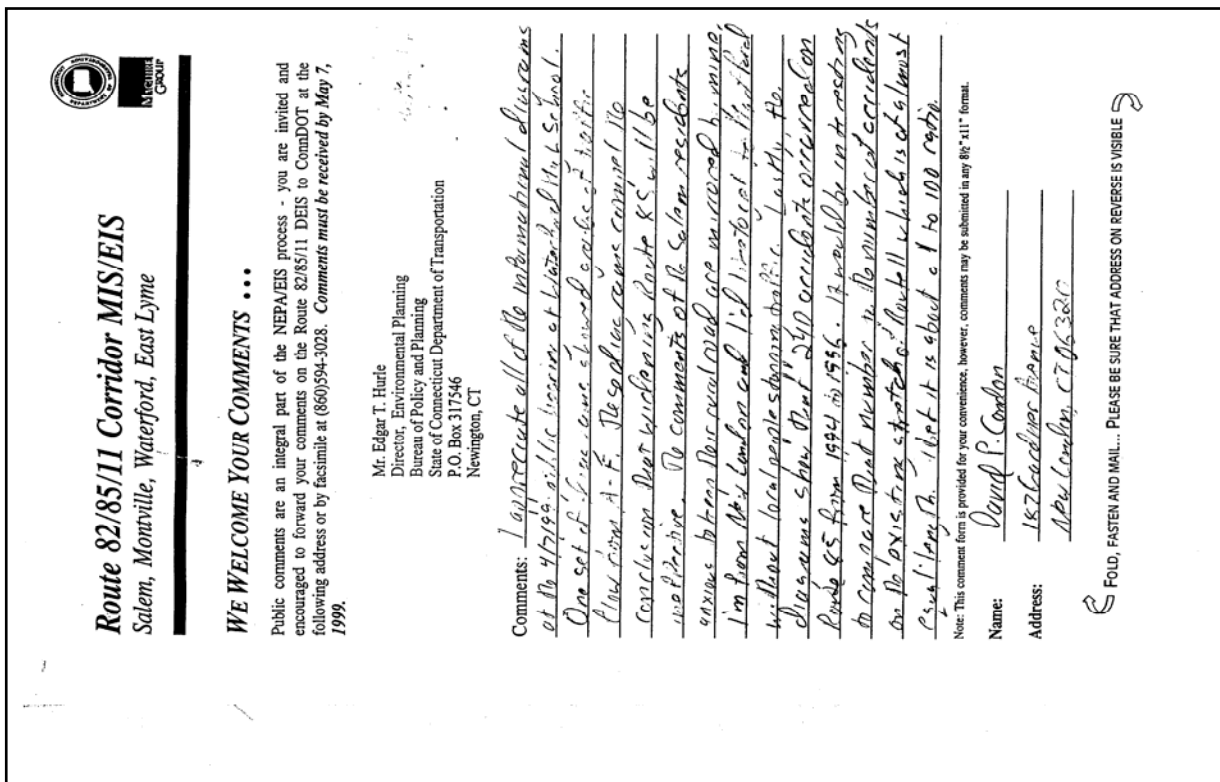 Route 82/85/11 Corridor MIS/EIS
Salem, Montville, Waterford, East Lyme
MAGUIRE
GROUP
WE WELCOME YOUR COMMENTS ...
Public comments are an integral part of the NEPA/EIS process - you are invited and
encouraged to forward your comments on the Route 82/85/11 DEIS to ConnDOT at the
following address or by facsimile at (860)594-3028. Comments must be received by May 7,
1999.
Mr. Edgar T. Hurle
Director, Environmental Planning
Bureau of Policy and Planning
State of Connecticut Department of Transportation
P.O. Box 317546
Newington, CT
Comments: I appreciate all of the informational diagrams
at the 4/7/99 public hearing at Waterford High School.
One set of showed grades of traffic
flow from A-F. These diagrams compel the
conclusion that widening Route 85 will be
ineffective. The comments of the Salem residents
anxious to keep their rural road are mirrored by mine:
I'm from New London and I'd like to eat
without local people slamming traffic. Lastly, the
diagrams show that 240 accidents occurred on
Route 85 from 1994 to 1996. It would be interesting
to compare that number to the number of accidents
on the existing stretch of Route 11 which is of almost
equal length. I bet it is about a 1 to 100 ratio.
Note: This comment form is provided for your convenience, however, comments may be submitted in any 8½"x11" format.
Name: David P. Condon
Address: Gardner Avenue
New London, CT 06320
FOLD, FASTEN AND MAIL... PLEASE BE SURE THAT ADDRESS ON REVERSE IS VISIBLE